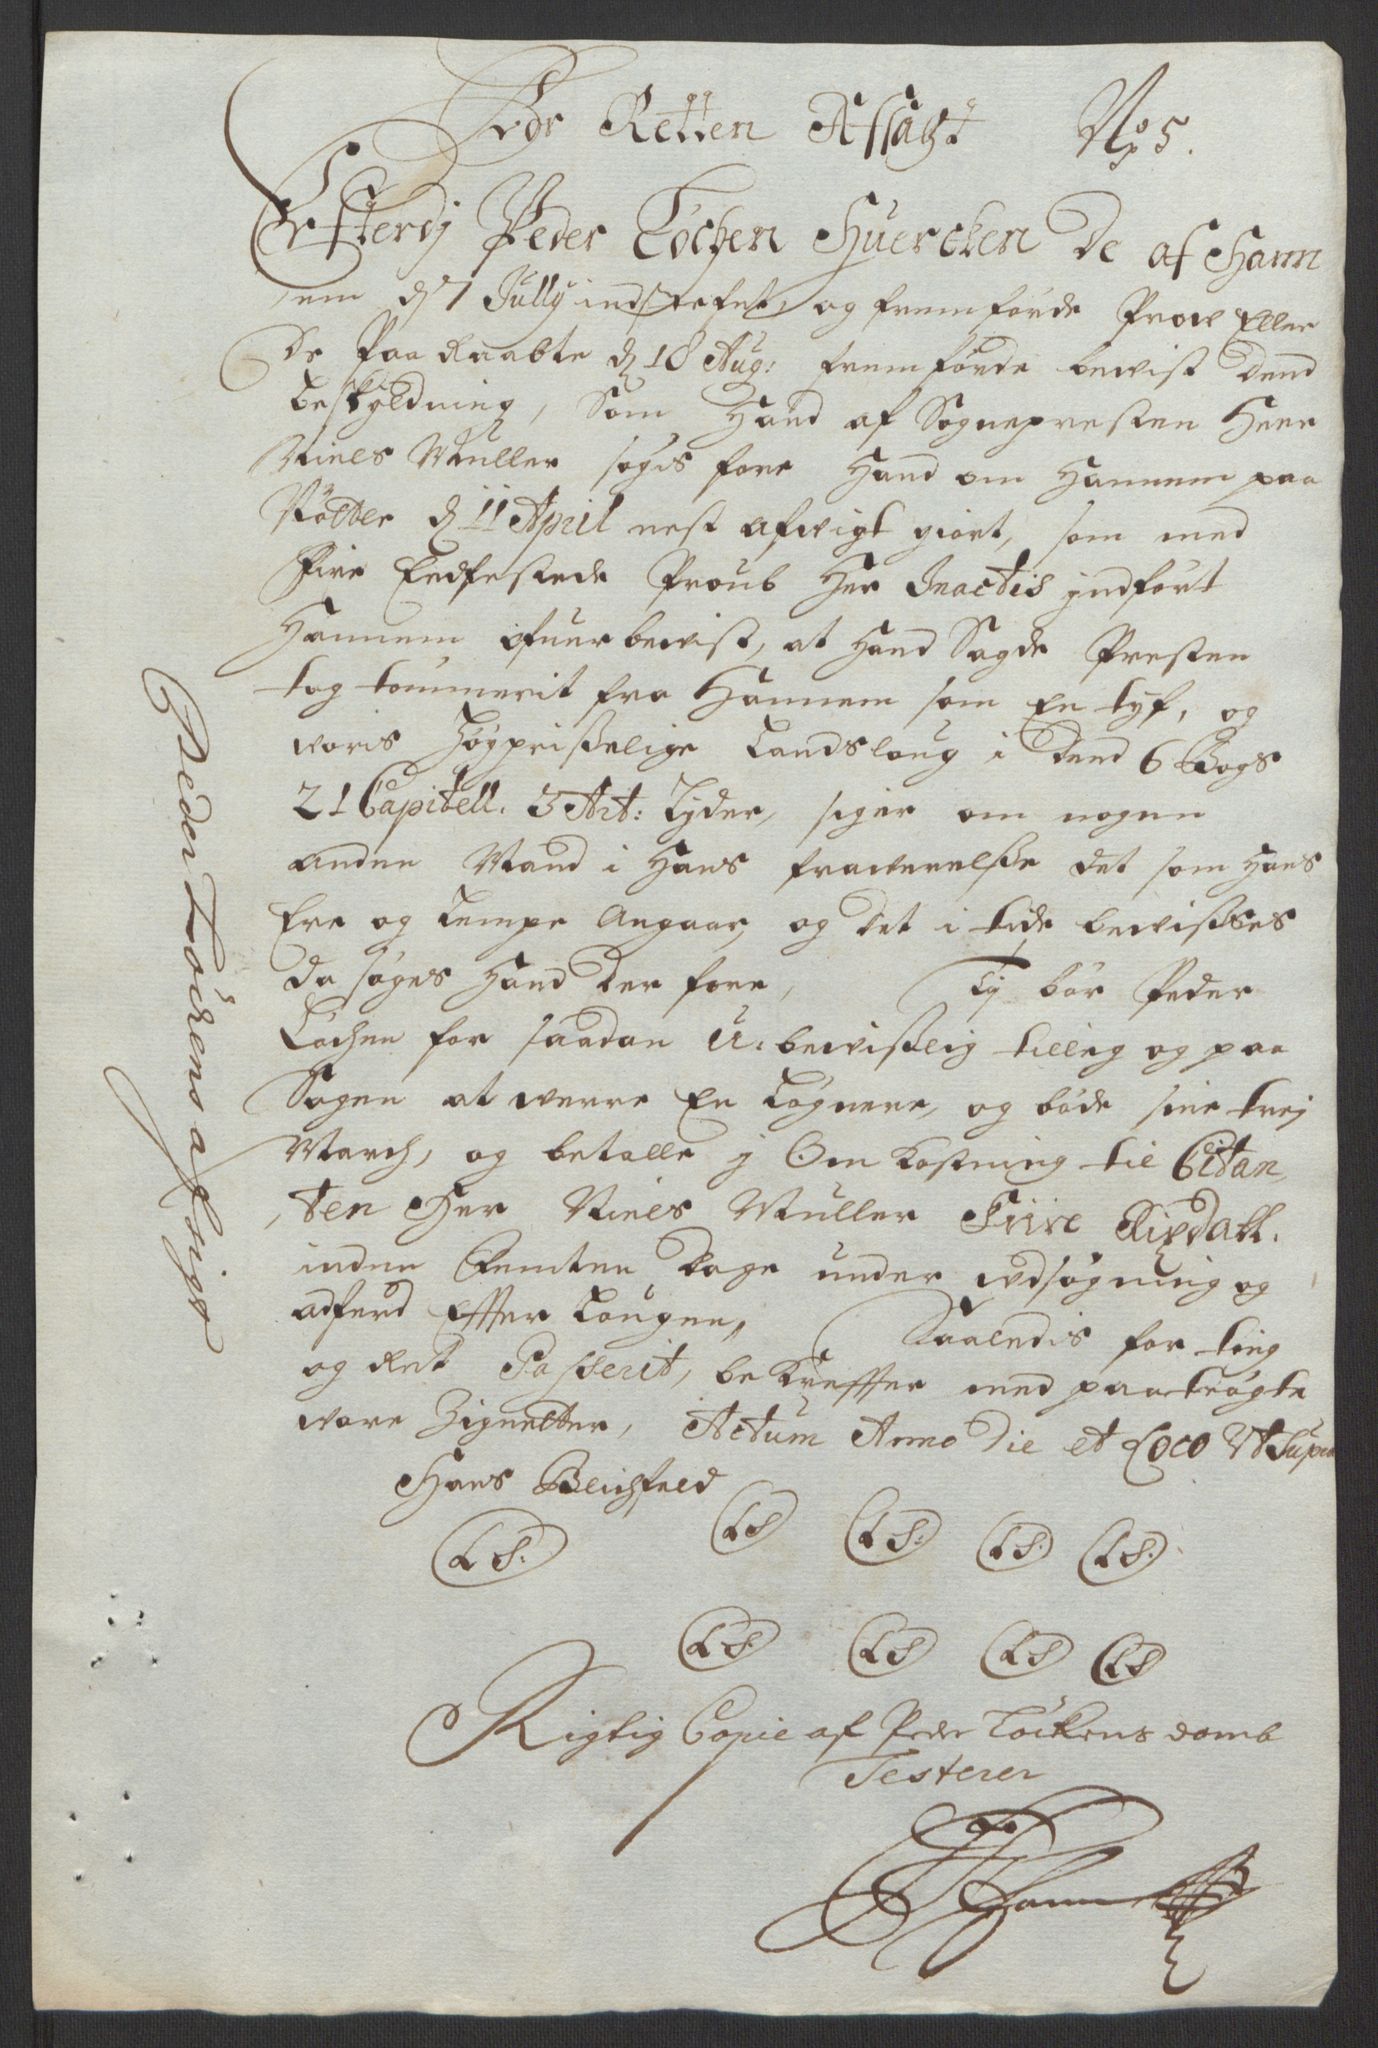 For Retten Affsagt No 5.
Efterdj Peder Løchen Huercken De af Hann
em d 7 Jully indstefnet, og fremførde Prow Eller
De Paaraabte d 18 Aug: fremførde bewist Dend
beskyldning, Som Hand af Sognepresten Herr
Niels Muller søgis fore Hand om Hannem paa
d 11 April nest afwigt giort, som med
Fire Eedfestede Proub Her Inactis jndført
Hannem ofuerbewist, at Hand Sagde Presten
tog tømmerit fra Hannem som En tyf, og
woris Høypriselige Landsloug i Dend 6 Bogs
21 Capitell. 3 Art: Lyder, siger om nogen
anden Mand i Hans frawerelsse det som Hans
Ere og Lempe Angaar, og Det i tide bewisses
da søges Hand Der fore, Ty bør Peder
Løchen for saadan U-bewislig tilleg og paa
Sagen at werre En Løgnere, og bøde sine trej
March, og betalle j Omkostning til Citan
ten Her Niels Muller Fiire Rixdall.
inden Femten Dage under udsøgning og
adferd Effter Lougen, Saaledis for ting
og Ret Passerit, bekreffter med paatrøgte
wore Zignetter, Actum Anno Die et Loco Ut Supra
Hans Bleichfeld
LS. LS LS: LS. LS.
LS. LS LS LS
Rigtig Copie af Peder Løckens domb
Testerer
Peder Løckens afsigt